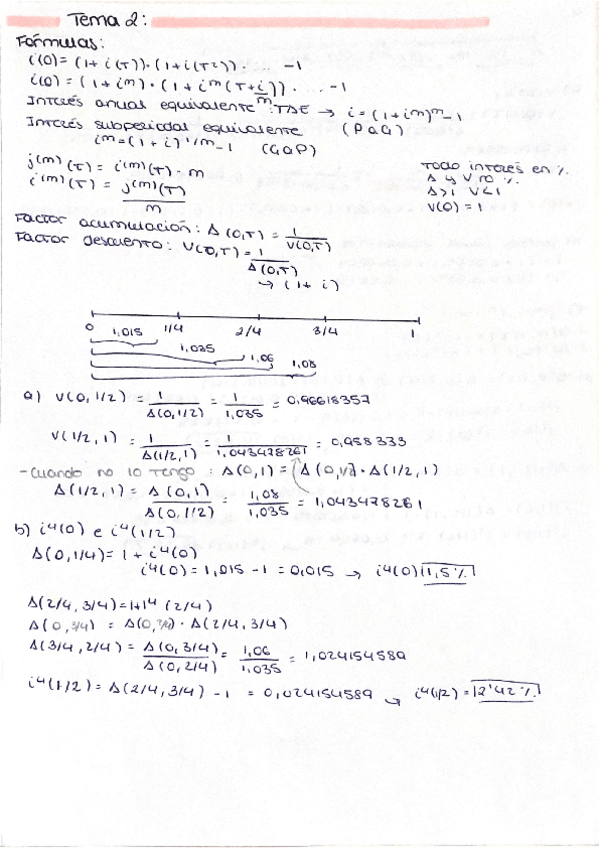 Tema 2:
Fórmulas:
i(0) = (1+i(T))·(1+i(T2))· ... -1
i(0) = (1+i^m)·(1+i^m(T+i/m))· ... -1
Interés anual equivalente : TAE → i = (1+i^m)^m - 1
Interés subperiodal equivalente (PaG)
i^m = (1+i)^1/m - 1 (GaP)
j^(m)(T) = i^(m)(T) · m
i^(m)(T) = j^(m)(T) / m
Todo interés en %.
Δ y V no %.
Δ>1 V<1
V(0) = 1
Factor acumulación : Δ(0,T) = 1 / V(0,T)
Factor descuento : V(0,T) = 1 / Δ(0,T)
→ (1+i)
0 1/4 2/4 3/4 1
1,015
1,035
1,06
1,08
a) V(0,1/2) = 1 / Δ(0,1/2) = 1 / 1,035 = 0,96618357
V(1/2,1) = 1 / Δ(1/2,1) = 1 / 1,043478261 = 0,958333
- Cuando no lo tengo : Δ(0,1) = Δ(0,1/2) · Δ(1/2,1)
Δ(1/2,1) = Δ(0,1) / Δ(0,1/2) = 1,08 / 1,035 = 1,043478261
b) i^4(0) e i^4(1/2)
Δ(0,1/4) = 1 + i^4(0)
i^4(0) = 1,015 - 1 = 0,015 → i^4(0) 1,5%
Δ(2/4,3/4) = 1+i^4 (2/4)
Δ(0,3/4) = Δ(0,2/4) · Δ(2/4,3/4)
Δ(3/4,2/4) = Δ(0,3/4) / Δ(0,2/4) = 1,06 / 1,035 = 1,024154589
i^4(1/2) = Δ(2/4,3/4) - 1 = 0,024154589 → i^4(1/2) = 2'42%